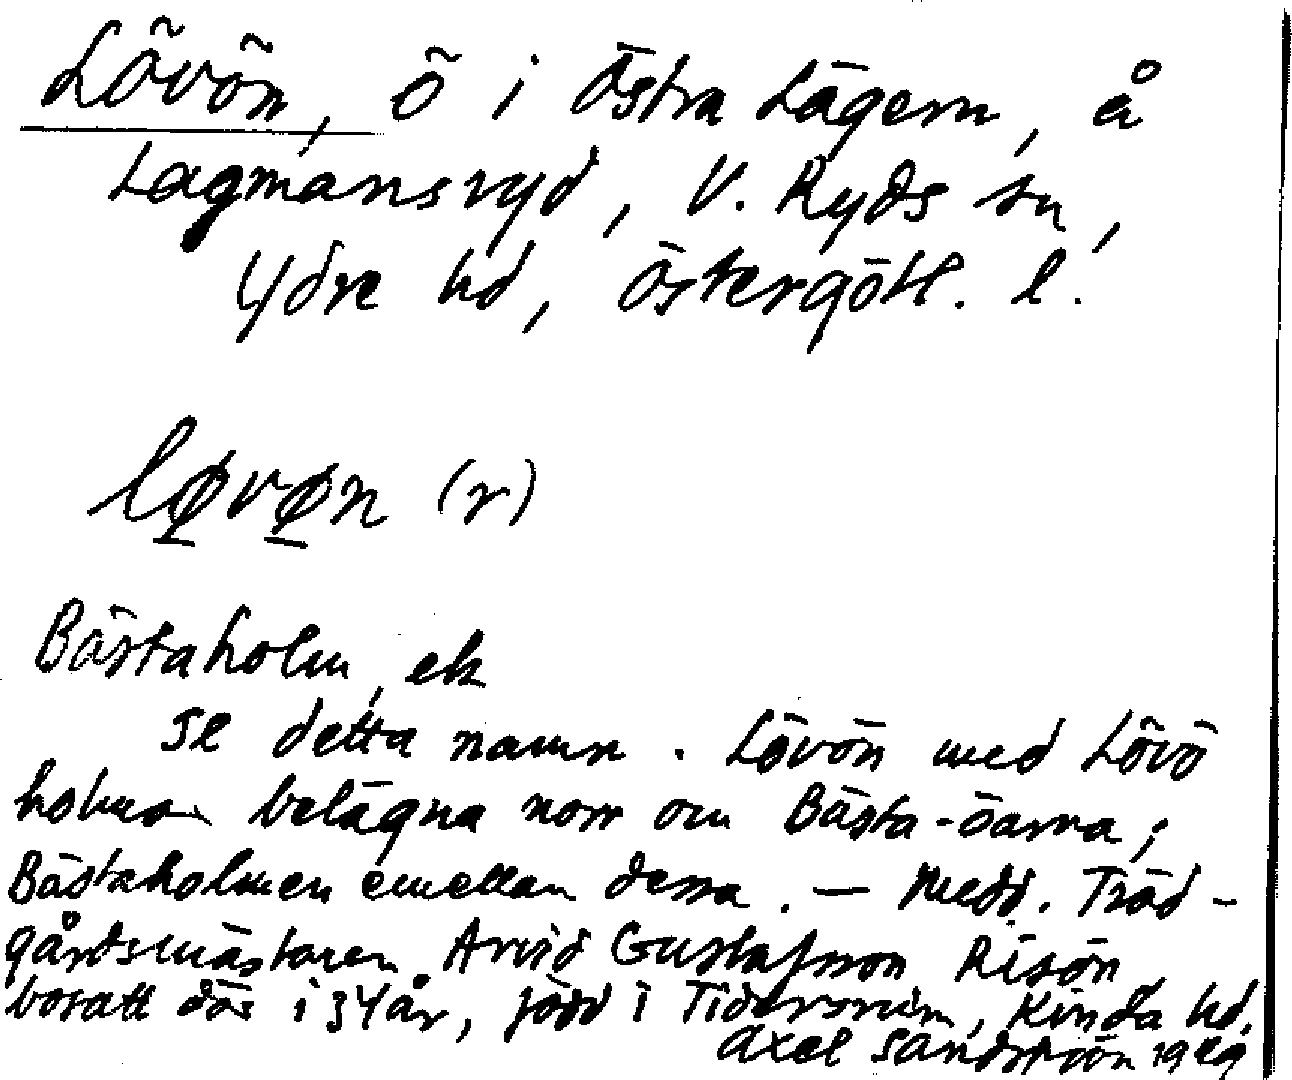 Lövön, ö i Östra Lägern, å
Lagmansryd, V. Ryds sn,
Ydre hd, Östergötl. l.
løvøn (r)
Bästaholm, ek
se detta namn. Lövön med Lövö
holmar belägna norr om Bästa-öarna;
Bästaholmen emellan dessa. — Medd. Träd-
gårdsmästaren Arvid Gustafsson Risön
bosatt där i 34 år, född i Tidersrum, Kinda hd.
Axel Sandström